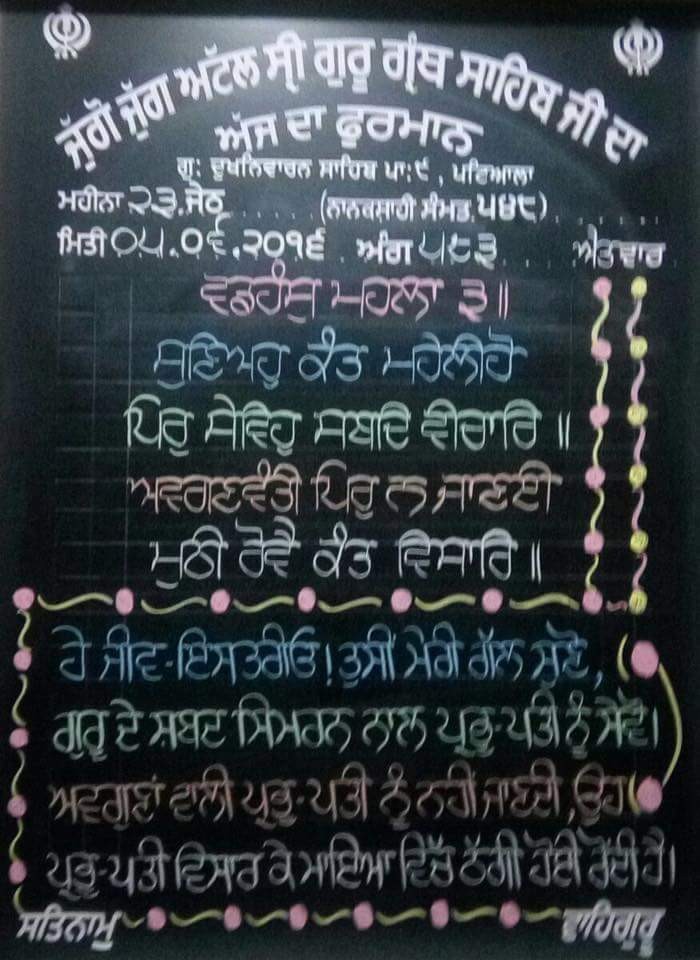 ਜੁੱਗੋ ਜੁੱਗ ਅਟੱਲ ਸ੍ਰੀ ਗੁਰੂ ਗ੍ਰੰਥ ਸਾਹਿਬ ਜੀ ਦਾ
ਅੱਜ ਦਾ ਫੁਰਮਾਨ
ਗੁ: ਦੁਖਨਿਵਾਰਨ ਸਾਹਿਬ ਪਾ:੯ , ਪਟਿਆਲਾ
ਮਹੀਨਾ ੨੩.ਜੇਠ (ਨਾਨਕਸਾਹੀ ਸੰਮਤ ੫੪੮)
ਮਿਤੀ ੦੫.੦੬.੨੦੧੬ ਅੰਗ ੫੮੩ ਐਤਵਾਰ
ਵਡਹੰਸੁ ਮਹਲਾ ੩॥
ਸੁਣਿਅਹੁ ਕੰਤ ਮਹੇਲੀਹੋ
ਪਿਰੁ ਸੇਵਿਹੁ ਸਬਦਿ ਵੀਚਾਰਿ ॥
ਅਵਗਣਵੰਤੀ ਪਿਰੁ ਨ ਜਾਣਈ
ਮੁਠੀ ਰੋਵੈ ਕੰਤ ਵਿਸਾਰਿ ॥
ਹੇ ਜੀਵ-ਇਸਤਰੀਓ! ਤੁਸੀਂ ਮੇਰੀ ਗੱਲ ਸੁਣੋ,
ਗੁਰੂ ਦੇ ਸ਼ਬਦ ਸਿਮਰਨ ਨਾਲ ਪ੍ਰਭੂ-ਪਤੀ ਨੂੰ ਸੇਵੋ।
ਅਵਗੁਣਾਂ ਵਾਲੀ ਪ੍ਰਭੂ-ਪਤੀ ਨੂੰ ਨਹੀਂ ਜਾਣਦੀ, ਉਹ
ਪ੍ਰਭੂ-ਪਤੀ ਵਿਸਾਰ ਕੇ ਮਾਇਆ ਵਿੱਚ ਠੱਗੀ ਹੋਈ ਰੋਂਦੀ ਹੈ।
ਸਤਿਨਾਮੁ ਵਾਹਿਗੁਰੂ